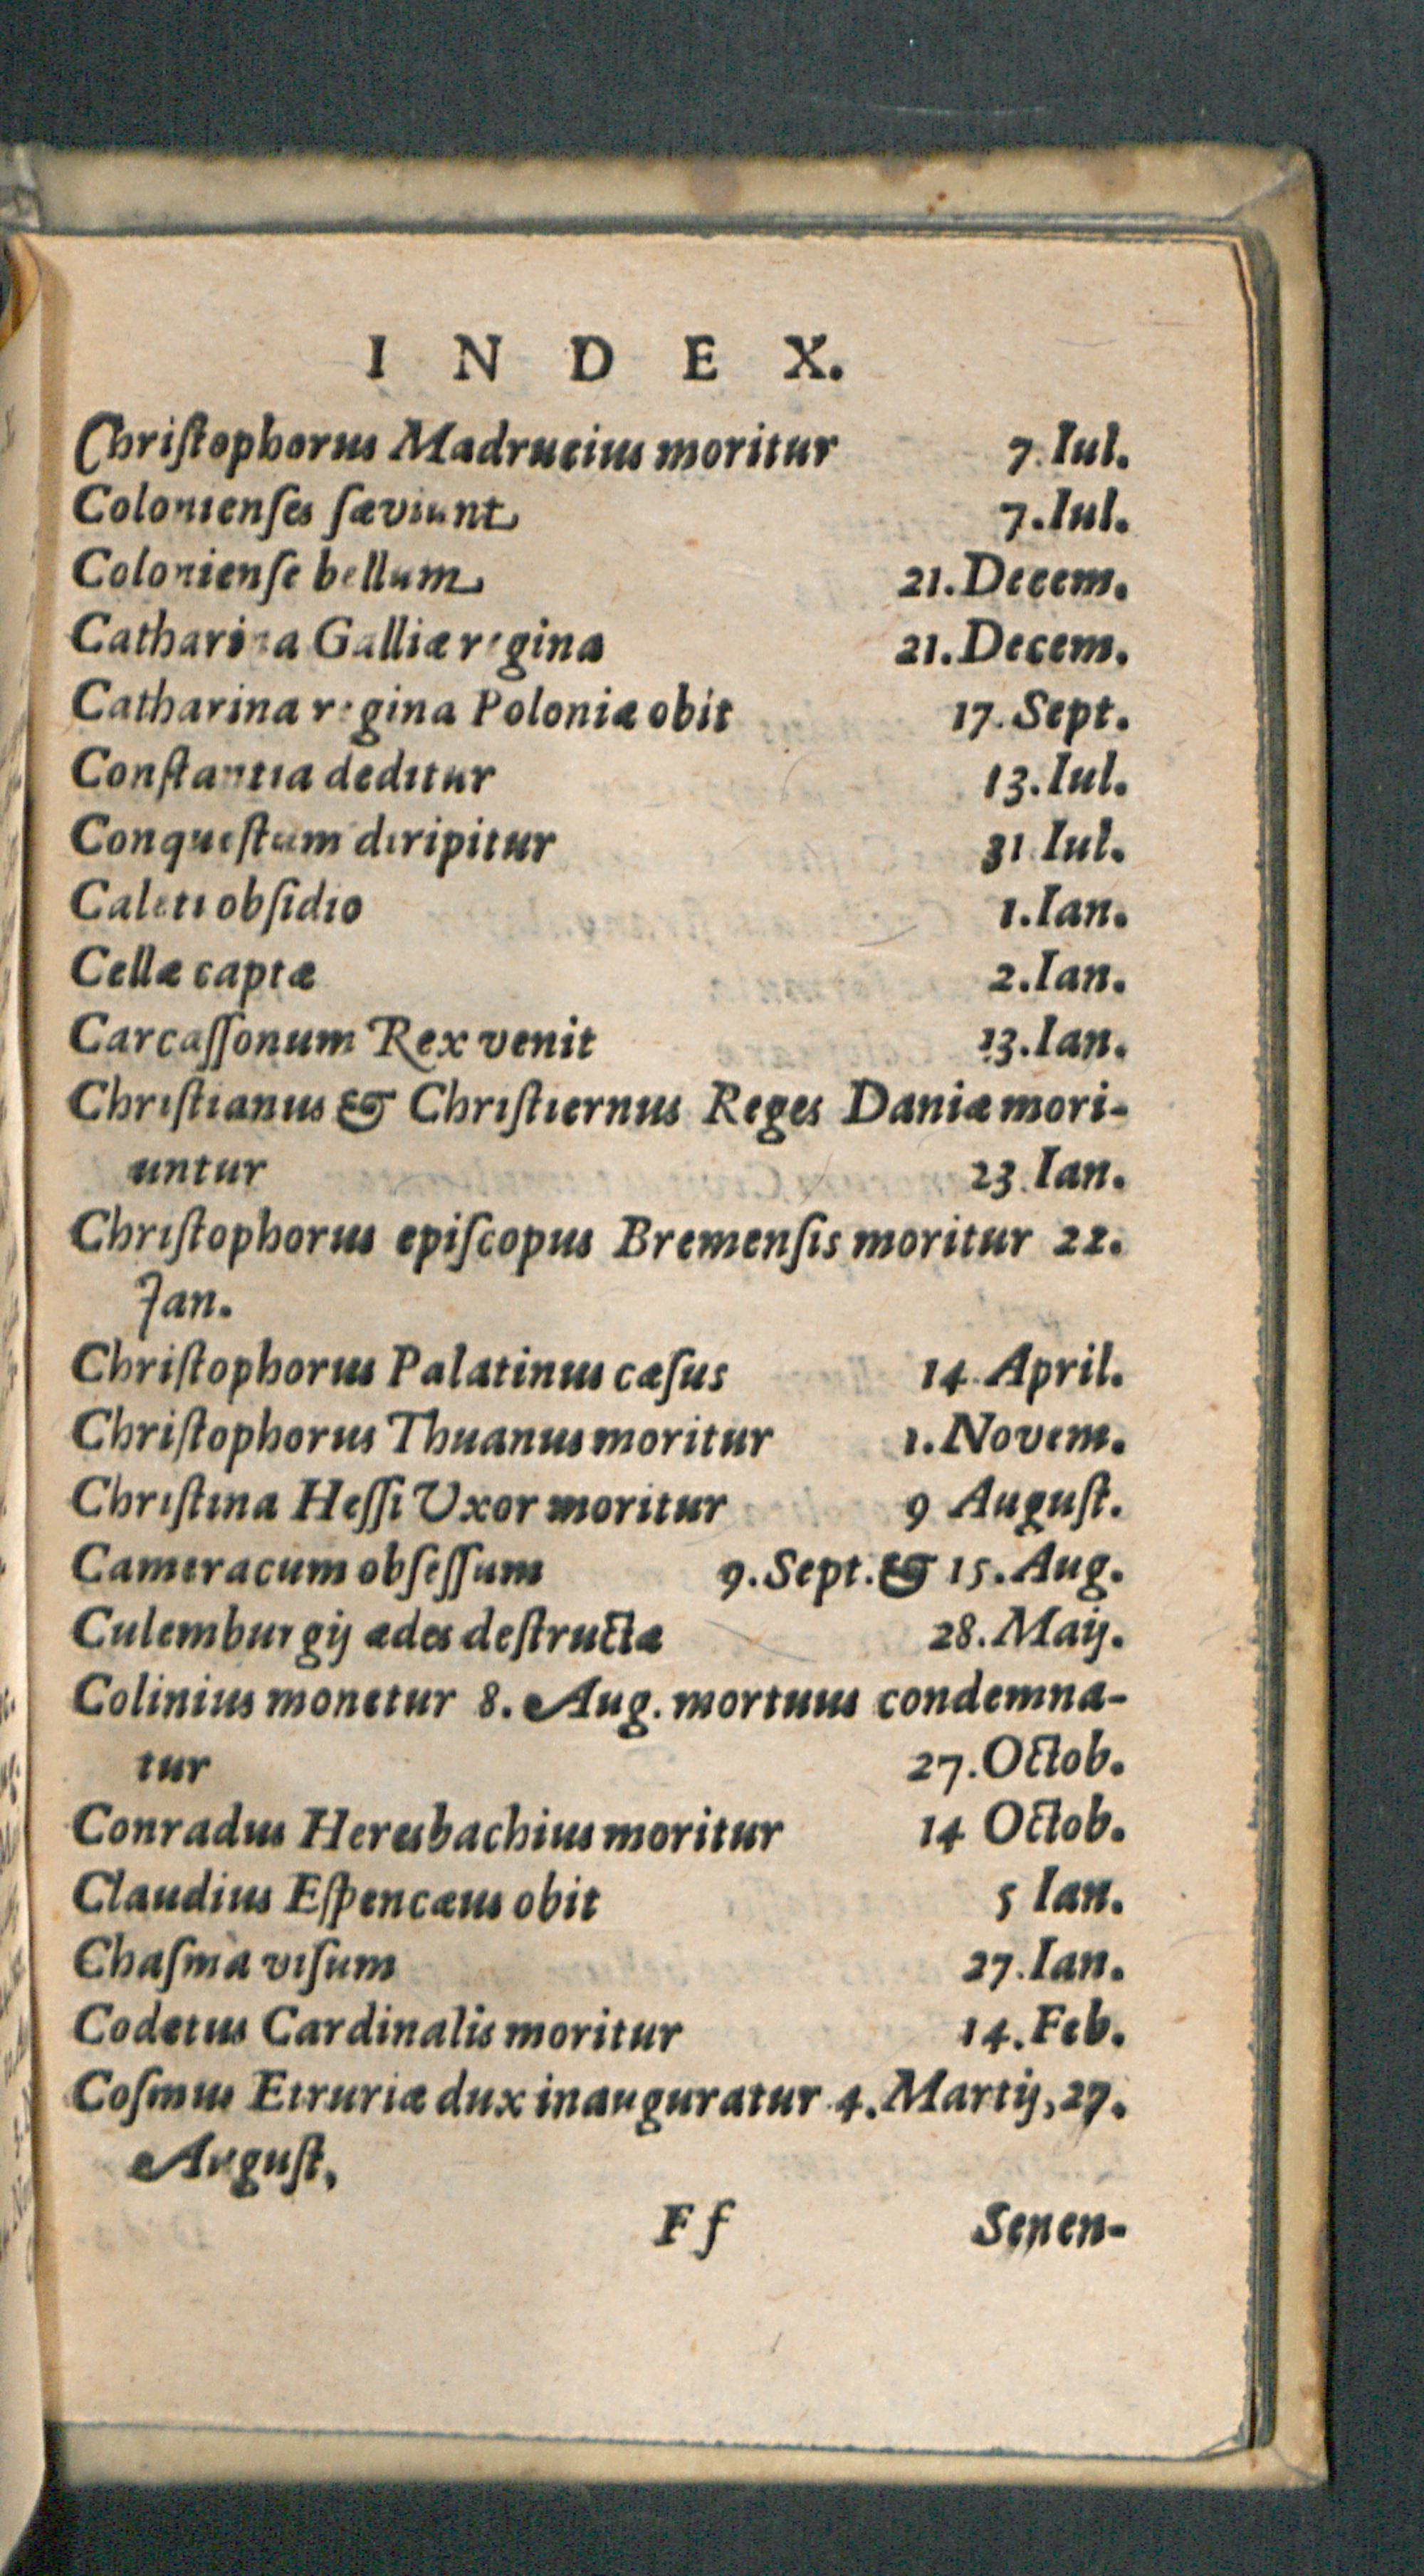 INDEX.
Chriſtophorus Madrucius moritur 7. Iul.
Colonienſes ſæviunt 7. Iul.
Colonienſe bellum 21. Decem.
Catharina Galliæ regina 21. Decem.
Catharina regina Poloniæ obit 17. Sept.
Conſtantia deditur 13. Iul.
Conqueſtum diripitur 31 Iul.
Caleti obſidio 1. Ian.
Cellæ captæ 2. Ian.
Carcaſſonum Rex venit 13. Ian.
Chriſtianus & Chriſtiernus Reges Daniæ mori-
untur 23. Ian.
Chriſtophorus epiſcopus Bremenſis moritur 22.
Jan.
Chriſtophorus Palatinus cæſus 14. April.
Chriſtophorus Thuanus moritur 1. Novem.
Chriſtina Heſſi Uxor moritur 9 Auguſt.
Cameracum obſeſſum 9. Sept. & 15. Aug.
Culemburgij ædes deſtructæ 28. Maij.
Colinius monetur 8. Aug. mortuus condemna-
tur 27. Octob.
Conradus Heresbachius moritur 14 Octob.
Claudius Eſpencæus obit 5 Ian.
Chaſma viſum 27. Ian.
Codetus Cardinalis moritur 14. Feb.
Coſmus Etruriæ dux inauguratur 4. Martij, 27.
Auguſt.
Ff Senen-